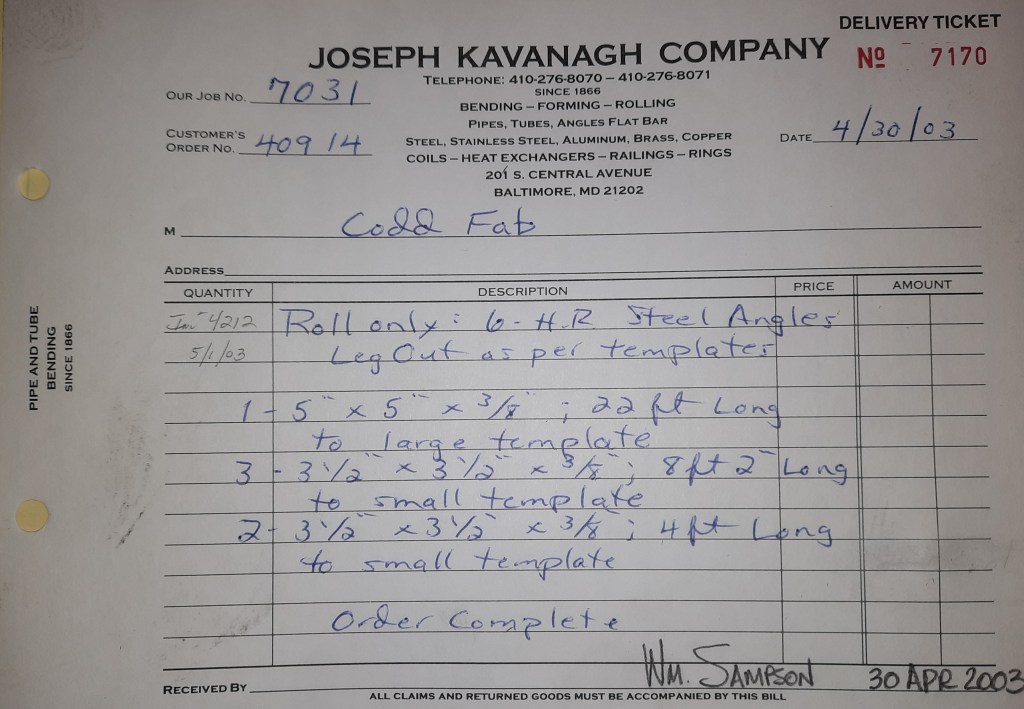 DELIVERY TICKET
JOSEPH KAVANAGH COMPANY
No 7170
TELEPHONE: 410-276-8070 – 410-276-8071
SINCE 1866
OUR JOB NO. 7031
BENDING – FORMING – ROLLING
PIPES, TUBES, ANGLES FLAT BAR
CUSTOMER'S
ORDER NO. 40914
STEEL, STAINLESS STEEL, ALUMINUM, BRASS, COPPER
DATE 4/30/03
COILS – HEAT EXCHANGERS – RAILINGS – RINGS
201 S. CENTRAL AVENUE
BALTIMORE, MD 21202
M Codd Fab
ADDRESS
QUANTITY DESCRIPTION PRICE AMOUNT
Inv 4212 Roll only: 6-H.R Steel Angles
5/1/03 Leg Out as per templates
1 - 5" x 5" x 3/8"; 22 ft Long
to large template
3 - 3 1/2" x 3 1/2" x 3/8"; 8 ft 2" Long
to small template
2 - 3 1/2" x 3 1/2" x 3/8; 4 ft Long
to small template
Order Complete
WM. SAMPSON 30 APR 2003
RECEIVED BY
ALL CLAIMS AND RETURNED GOODS MUST BE ACCOMPANIED BY THIS BILL
PIPE AND TUBE
BENDING
SINCE 1866